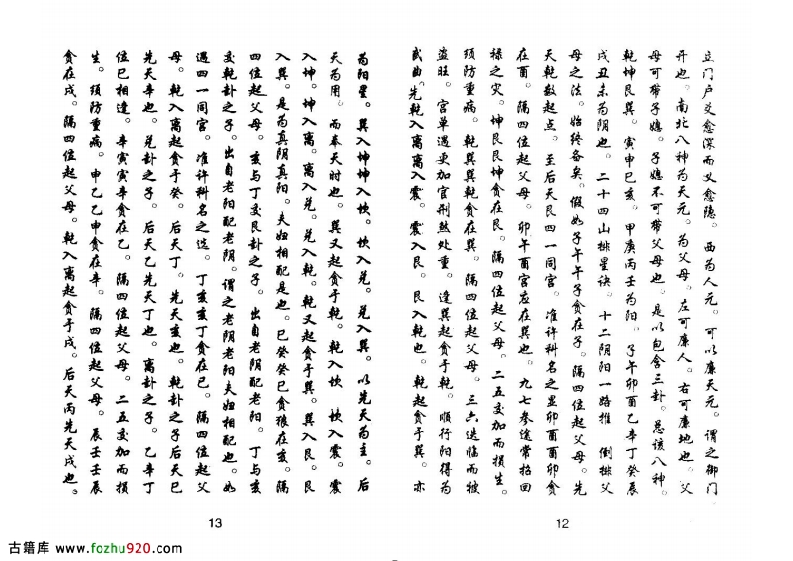 立门户爻愈深而义愈隐。西为人元。可以廉天元。谓之御门
开也。南北八神为天元。为父母。左可廉人。右可廉地也。父
母可带子媳。子媳不可带父母也。是以包含三卦。总该八神。
乾坤艮巽。寅申巳亥。甲庚丙壬为阳。子午卯酉乙辛丁癸辰
戌丑未为阴也。二十四山排星诀。十二阴阳一路推 倒排父
母之法。始终备矣。假如子午午子贪在子。隔四位起父母。先
天乾数起点。至后天艮四一同宫。准许科名之显卯酉酉卯贪
在酉。隔四位起父母。卯午酉宫应在巽也。九七参途常招回
禄之灾。坤艮艮坤贪在艮。隔四位起父母。二五交加而损生。
须防重病。乾巽巽乾贪在巽。隔四位起父母。三六迭临而被
盗旺。官单遇更加官刑煞处重。逢巽起贪于乾。顺行阳得为
武曲。先乾入离离入震。震入艮。艮入乾也。乾起贪于巽。亦
12
为阳星。巽入坤坤入坎。坎入兑。兑入巽。以先天为主。后
天为用。而奉天时也。巽又起贪于乾。乾入坎 坎入震。震
入坤。坤入离。离入兑。兑入乾。乾又起贪于巽。巽入艮。艮
入巽。是为真阴真阳。夫妇相配是也。巳癸癸巳贪狼在亥。隔
四位起父母。亥与丁交艮卦之子。出自老阴配老阳。丁与亥
交乾卦之子。出自老阳配老阴。谓之老阴老阳夫妇相配也。如
遇四一同宫。准许科名之选。丁亥亥丁贪在巳。隔四位起父
母。乾入离起贪于癸。后天丁。先天亥也。乾卦之子后天巳
先天辛也。兑卦之子。后天乙先天丁也。离卦之子。乙辛丁
位巳相逢。辛寅寅辛贪在乙。隔四位起父母。二五交加而损
生。须防重病。申乙乙申贪在辛。隔四位起父母。辰壬壬辰
贪在戌。隔四位起父母。乾入离起贪于戌。后天丙先天戌也。
13
古籍库 www.fozhu920.com